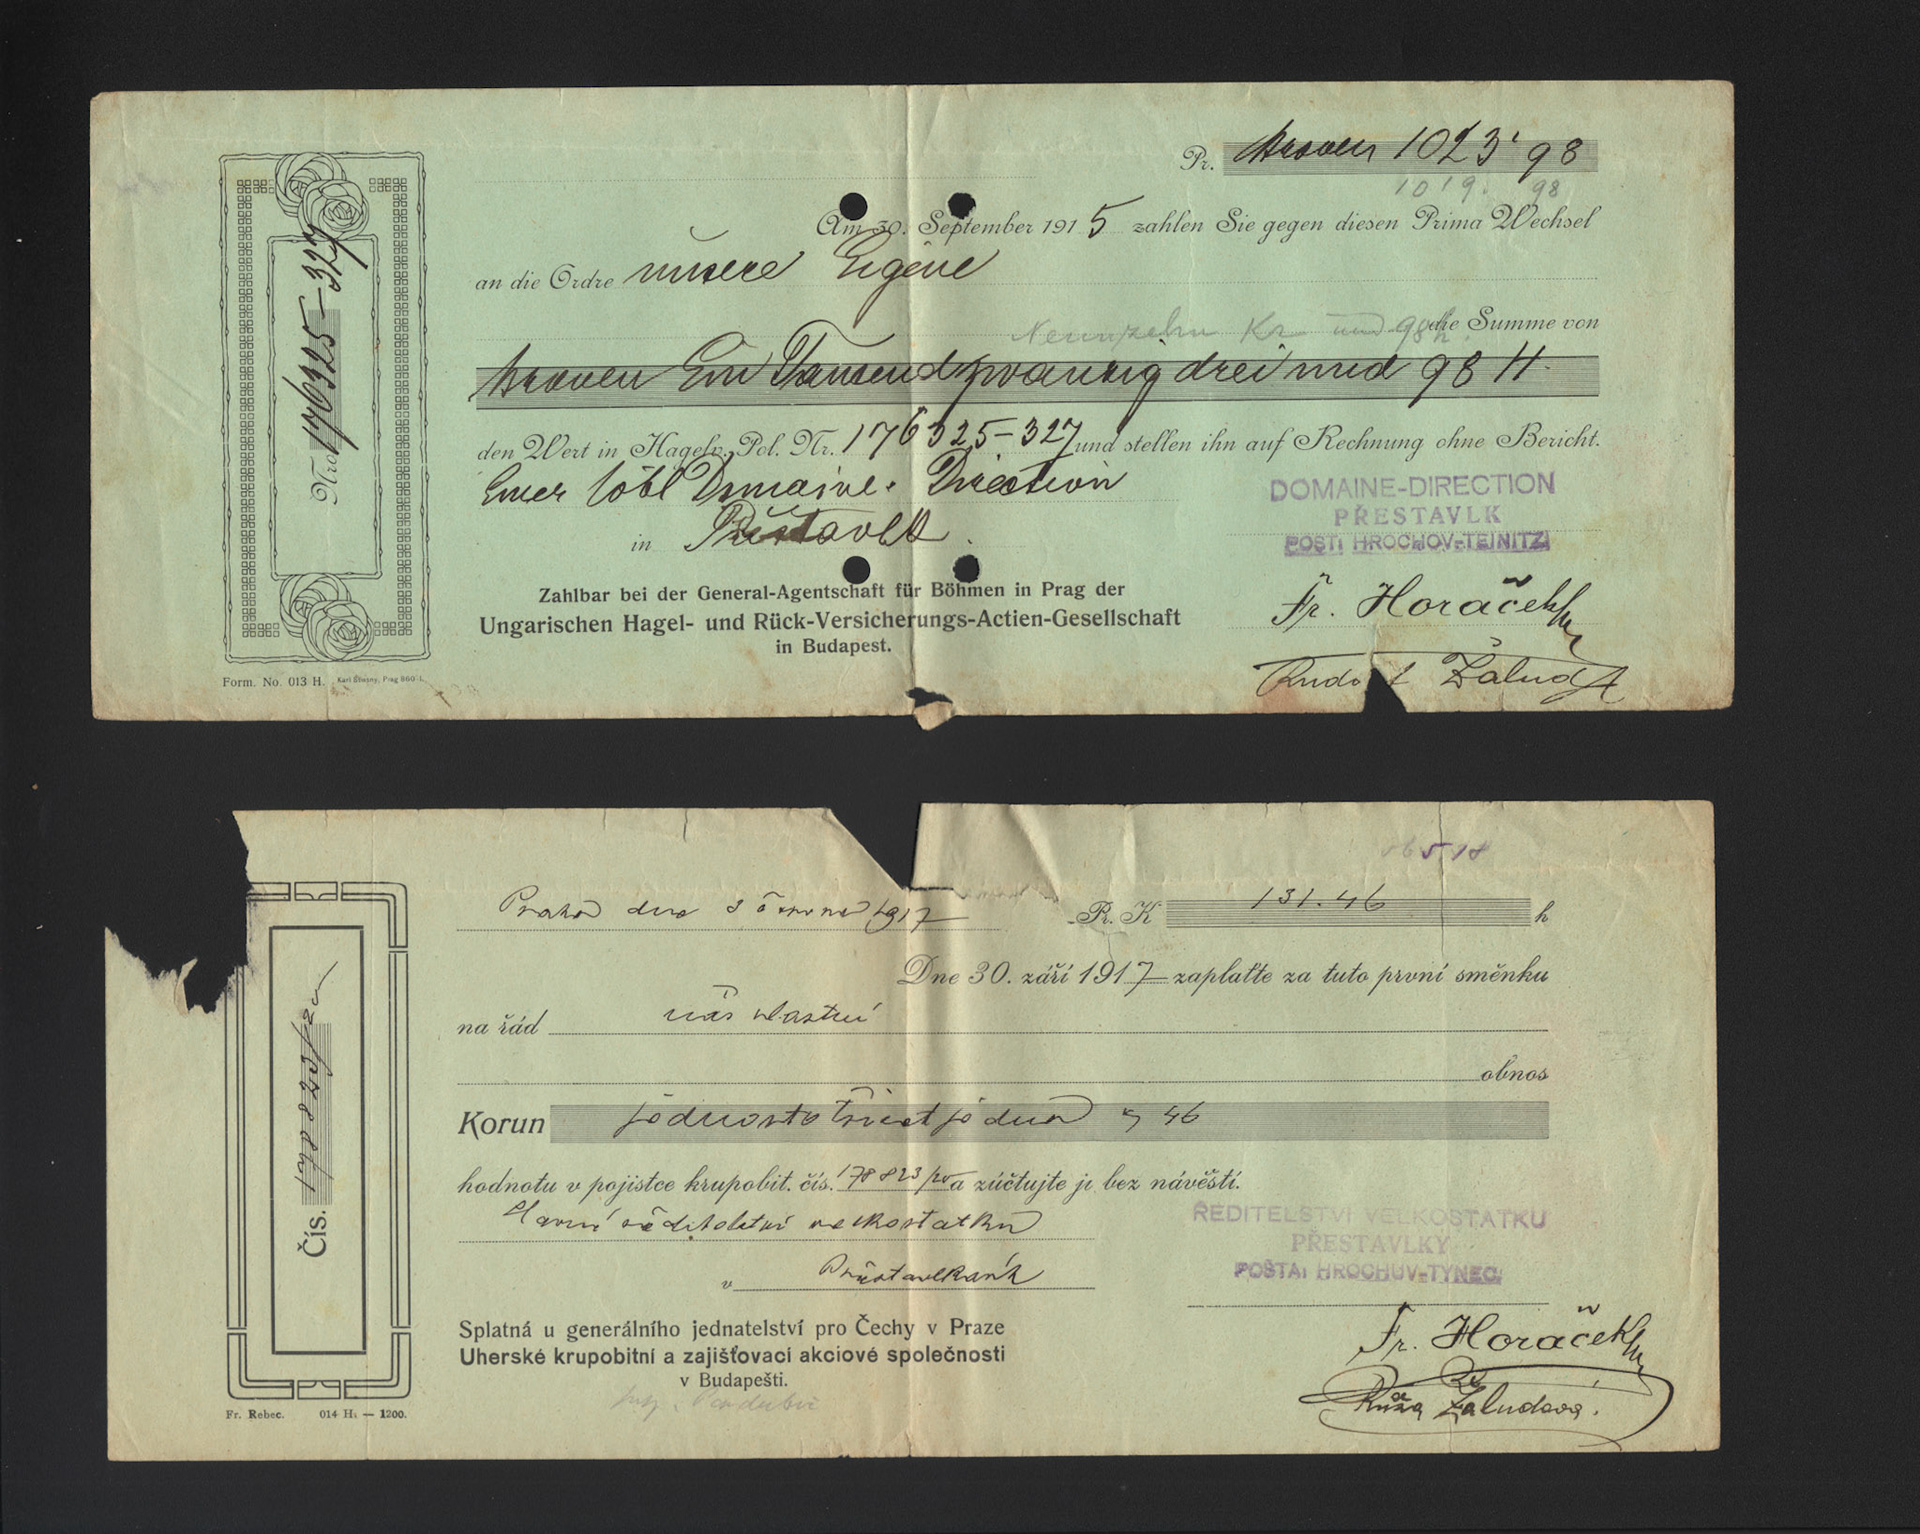 Pr. Kronen 1023 98
1019. 98
Am 30. September 1915 zahlen Sie gegen diesen Prima Wechsel
an die Ordre unsere Eigene
Neunzehn Kr und 98h. die Summe von
Kronen Ein Tausend zwanzig drei und 98 H.
den Wert in Hagelv. Pol. Nr. 176325-327 und stellen ihn auf Rechnung ohne Bericht.
Einer löbl Domaine-Direction
in Přestavlk.
Zahlbar bei der General-Agentschaft für Böhmen in Prag der
Ungarischen Hagel- und Rück-Versicherungs-Actien-Gesellschaft
in Budapest.
Nro 176325-327
Form. No. 013 H. Karl Stivsny, Prag 860
DOMAINE-DIRECTION
PŘESTAVLK
POST: HROCHOV-TEINITZ
Fr. Horáček
Rudolf Žalud
Praha dne 3 června 1917
P. K 131.46 h
Dne 30. září 1917 zaplaťte za tuto první směnku
na řád náš vlastní
obnos
Korun jednosto třicet jedna 46
hodnotu v pojistce krupobit. čís. 178823/20 a zúčtujte ji bez návěští.
Slavné ředitelství velkostatku
v Přestavlkách
Splatná u generálního jednatelství pro Čechy v Praze
Uherské krupobitní a zajišťovací akciové společnosti
v Budapešti.
Čís. 178823/20
Fr. Rebec. 014 H. — 1200.
ŘEDITELSTVÍ VELKOSTATKU
PŘESTAVLKY
POŠTA: HROCHŮV-TÝNEC
Fr. Horáček
Růža Žaludová.